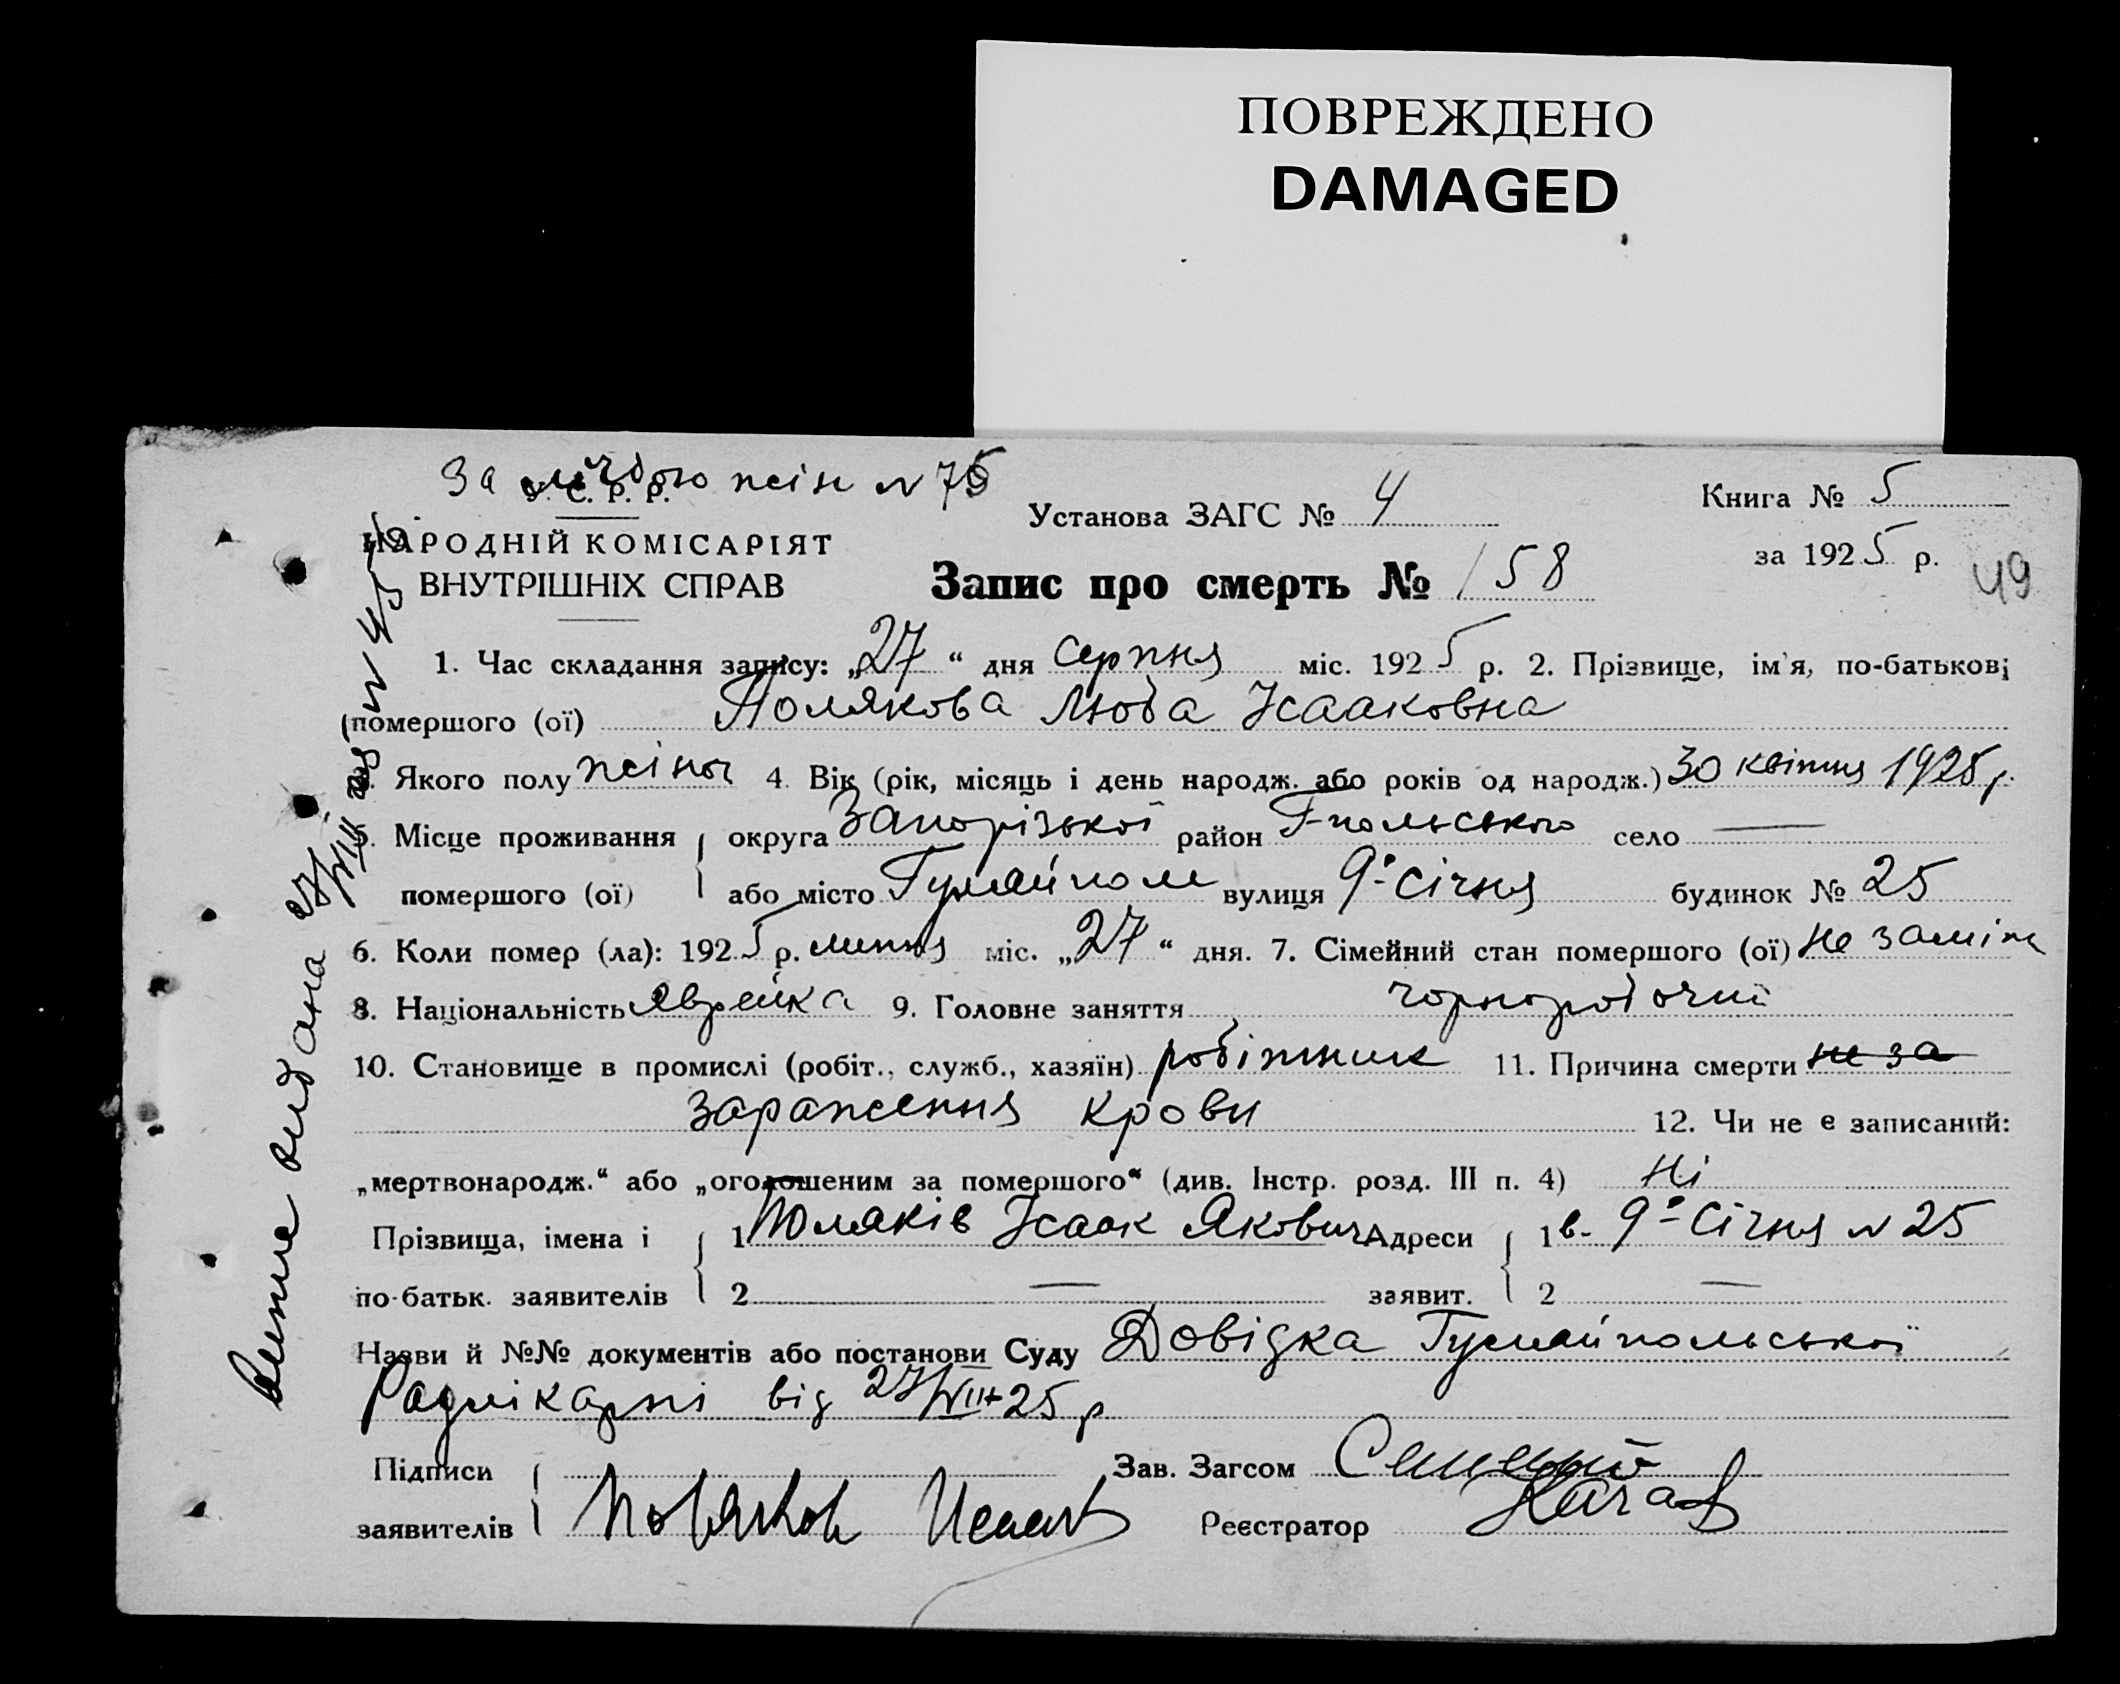 ПОВРЕЖДЕНО
DAMAGED
За лічбою жін N 75
У. С. Р. Р.
НАРОДНІЙ КОМІСАРІЯТ
ВНУТРІШНІХ СПРАВ
Установа ЗАГС № 4
Книга № 5
за 1925 р.
49
Запис про смерть № 158
1. Час складання запису: „27“ дня серпня міс. 1925 р. 2. Прізвище, ім'я, по-батькові
(помершого (ої) Полякова Люба Ісааковна
3. Якого полу жіноч 4. Вік (рік, місяць і день народж. або років од народж.) 30 квітня 1925 р.
5. Місце проживання помершого (ої) округа Запорізької район Г-польського село —
або місто Гуляйполе вулиця 9го Січня будинок № 25
6. Коли помер (ла): 1925 р. липня міс. „27“ дня. 7. Сімейний стан помершого (ої) не заміж
8. Національність Яврейка 9. Головне заняття чорноробочий
10. Становище в промислі (робіт., служб., хазяїн) робітник 11. Причина смерти не за
зараження крови 12. Чи не є записаний:
„мертвонародж.“ або „оголошеним за помершого“ (див. Інстр. розд. III п. 4) Ні
Прізвища, імена і по-батьк. заявителів 1 Поляків Ісаак Якович Адреси заявит. 1 в- 9го Січня N 25
2 — 2 —
Назви й №№ документів або постанови Суду Довідка Гуляйпольської
Радлікарні від 27/VIII 25 р
Підписи заявителів Поляков Исаак
Зав. Загсом
Реєстратор
видана 27/VIII за N 45